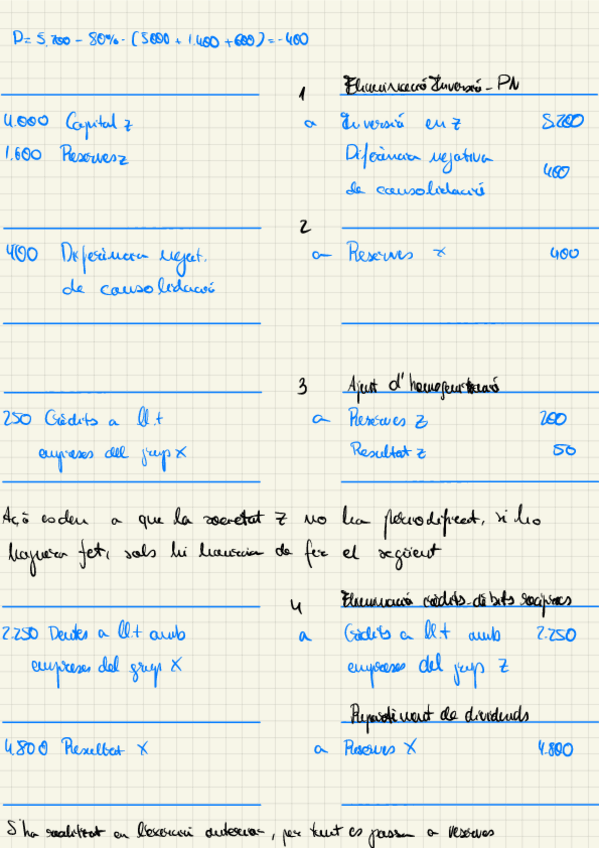 D = 5.200 - 80% · (5000 + 1.400 + 600) = -400
1 Eliminació Inversió - PN
4.000 Capital Z a Inversió en Z 5.200
1.600 Reserves Z Diferència negativa
de consolidació 400
2
400 Diferència negat. a Reserves X 400
de consolidació
3 Ajust d'homogeneització
250 Crèdits a ll.t a Reserves Z 200
empreses del grup X Resultat Z 50
Açò es deu a que la societat Z no ha periodificat, si ho
haguera fet, sols hi hauria de fer el següent
4 Eliminació crèdits-dèbits recíprocs
2.250 Deutes a ll.t amb a Crèdits a ll.t amb 2.250
empreses del grup X empreses del grup Z
Repartiment de dividends
4.800 Resultat X a Reserves X 4.800
S'ha realitzat en l'exercici anterior, per tant es passa a reserves